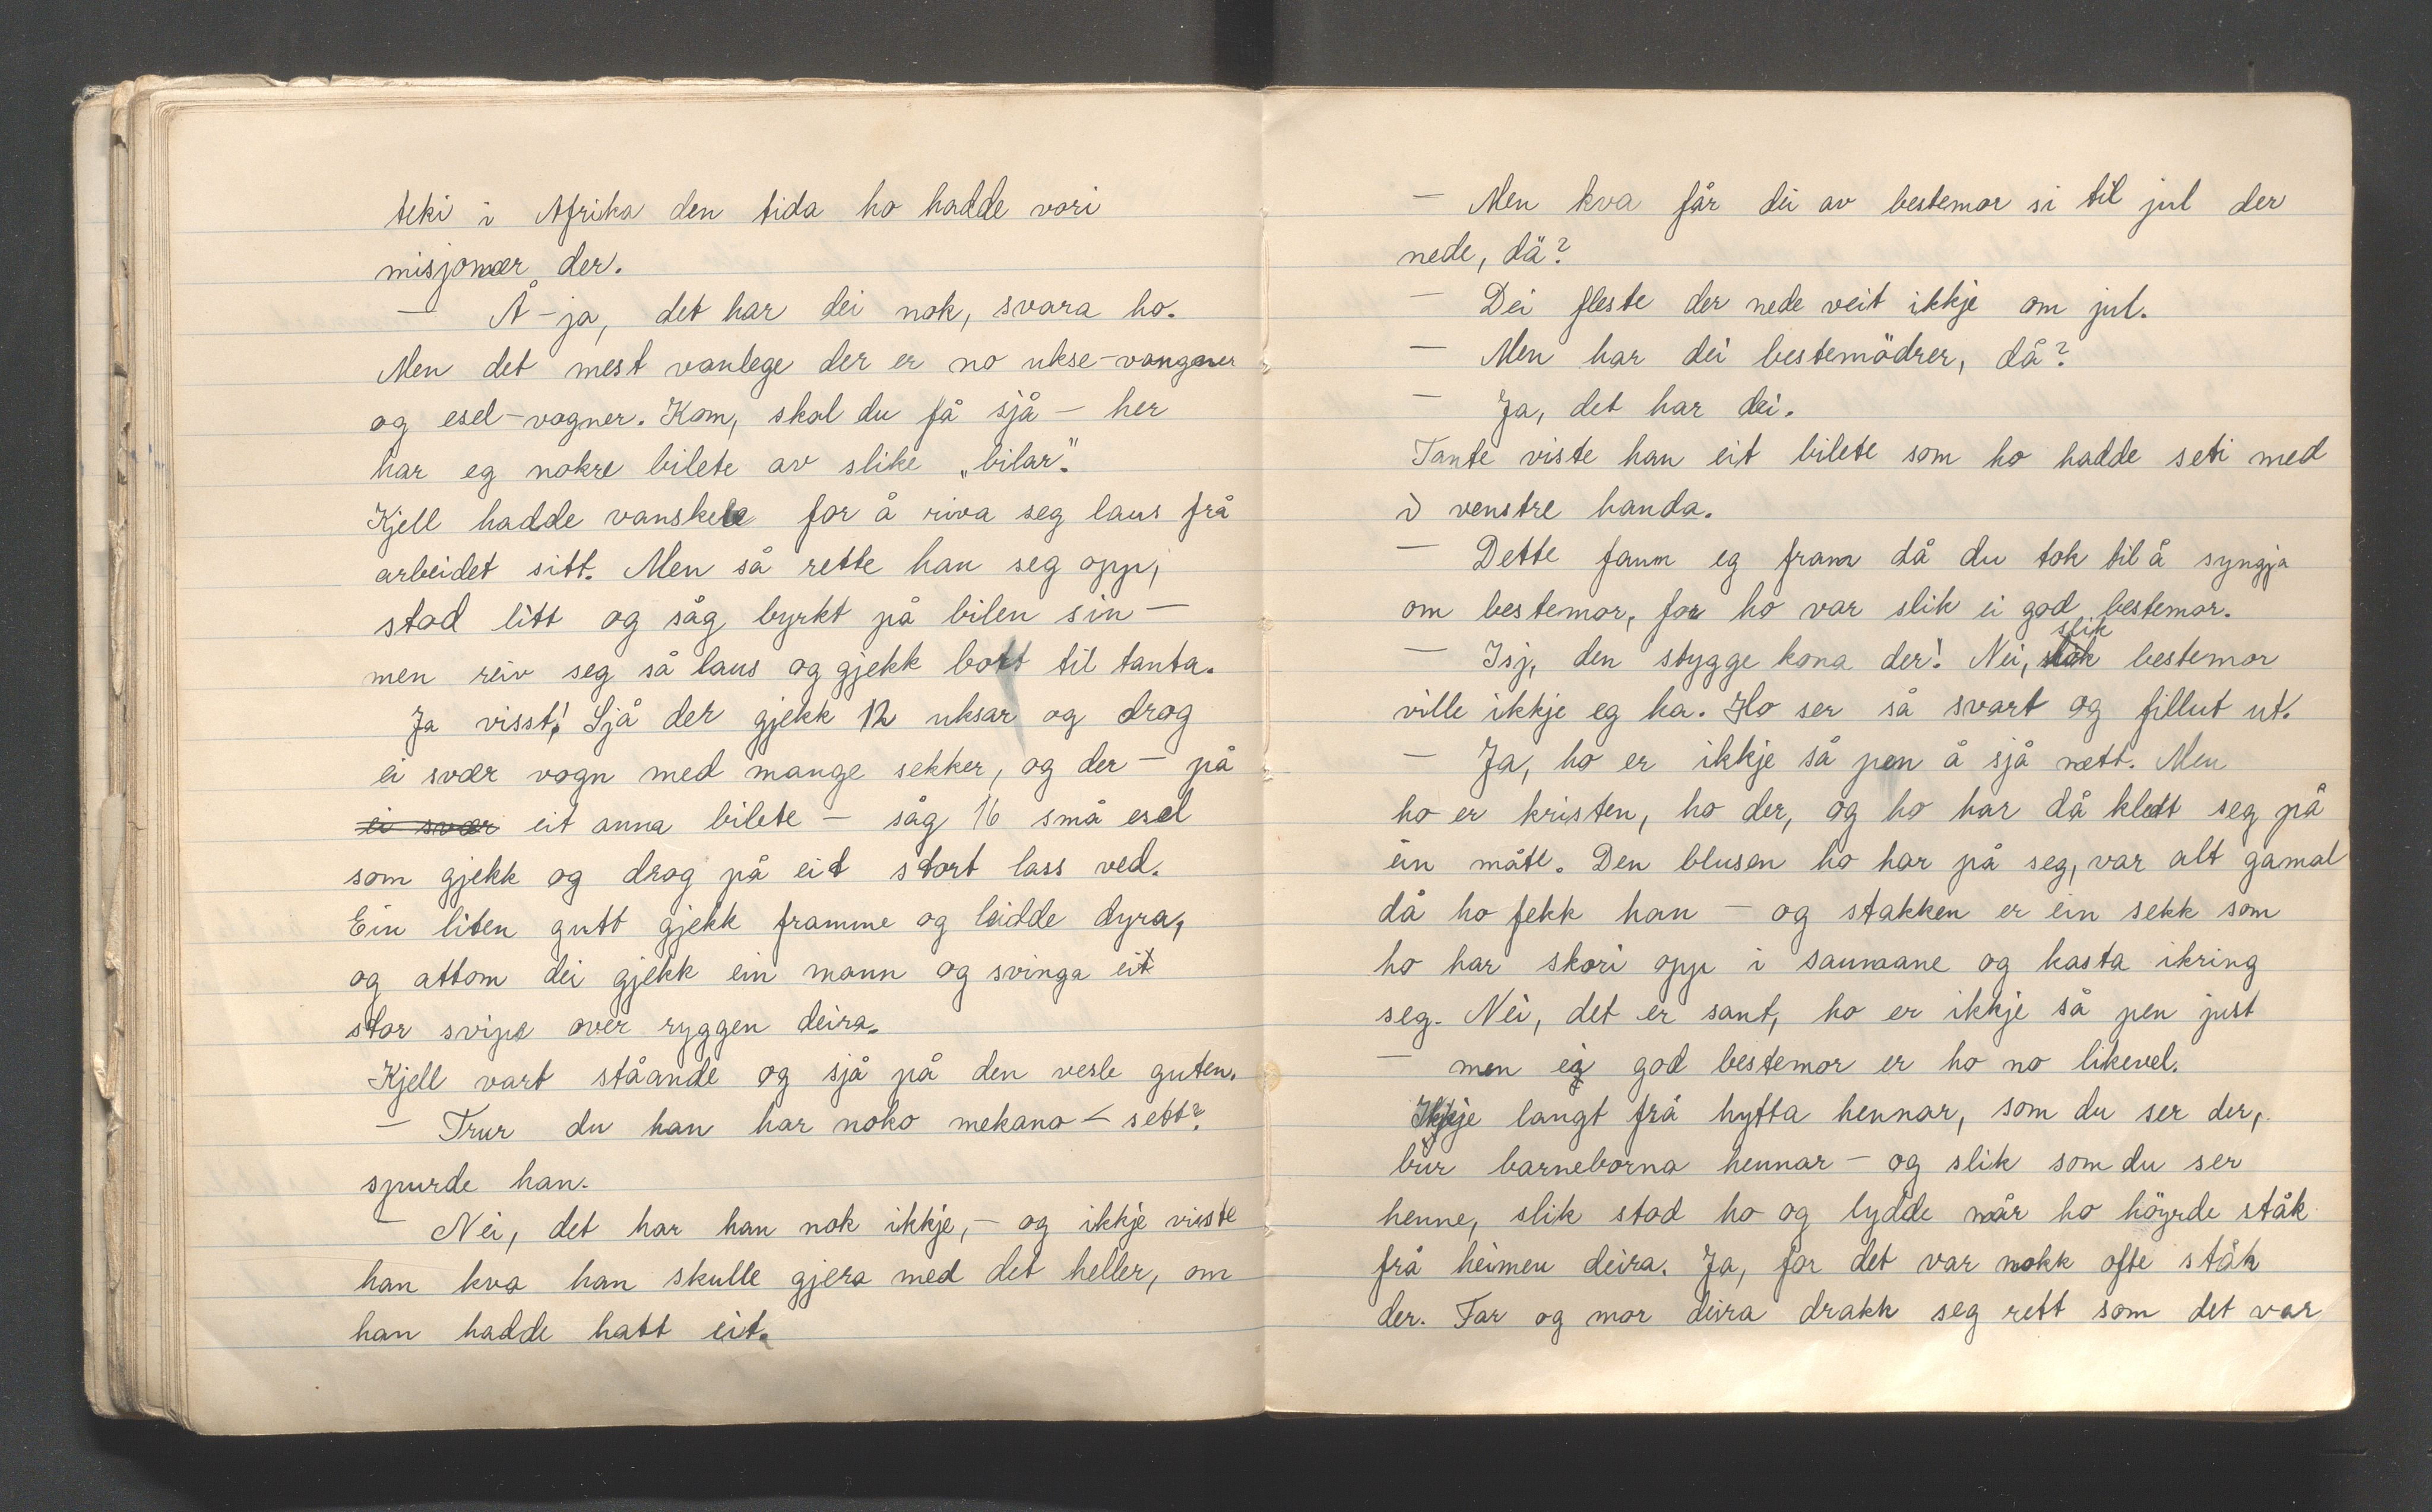 teki i Afrika den tida ho hadde vori
misjonær der.
— Å-ja, det har dei nok, svara ho.
Men det mest vanlege der er no ukse-vangner
og esel-vogner. Kom, skal du få sjå — her
har eg nokre bilete av slike „bilar".
Kjell hadde vanskele for å riva seg laus frå
arbeidet sitt. Men så rette han seg opp,
stod litt og såg byrkt på bilen sin —
men reiv seg så laus og gjekk bort til tanta.
Ja visst! Sjå der gjekk 12 uksar og drog
ei svær vogn med mange sekker, og der — på
ei svær eit anna bilete — såg 16 små esel
som gjekk og drog på eit stort lass ved.
Ein liten gutt gjekk framme og leidde dyra,
og attom dei gjekk ein mann og svinga eit
stor svipe over ryggen deira.
Kjell vart ståande og sjå på den vesle guten.
— Trur du han har noko mekano - sett?
spurde han.
— Nei, det har han nok ikkje, — og ikkje visste
han kva han skulle gjera med det heller, om
han hadde hatt eit.
— Men kva får dei av bestemor si til jul der
nede, då?
— Dei fleste der nede veit ikkje om jul.
— Men har dei bestemödrer, då?
— Ja, det har dei.
Tante viste han eit bilete som ho hadde seti med
i venstre handa.
— Dette fann eg fram då du tok til å syngja
om bestemor, for ho var slik ei god bestemor.
— Isj, den stygge kona der! Nei, slik bestemor
ville ikkje eg ha. Ho ser så svart og fillut ut.
— Ja, ho er ikkje så pen å sjå nett. Men
ho er kristen, ho der, og ho har då kledt seg på
ein måte. Den blusen ho har på seg, var alt gamal
då ho fekk han — og stakken er ein sekk som
ho har skori opp i saumane og kasta ikring
seg. Nei, det er sant, ho er ikkje så pen just
— men ei god bestemor er ho no likevel.
Ikkje langt frå hytta hennar, som du ser der,
bur barneborna hennar — og slik som du ser
henne, slik stod ho og lydde når ho höyrde ståk
frå heimen deira. Ja, for det var nokk ofte ståk
der. Far og mor deira drakk seg rett som det var